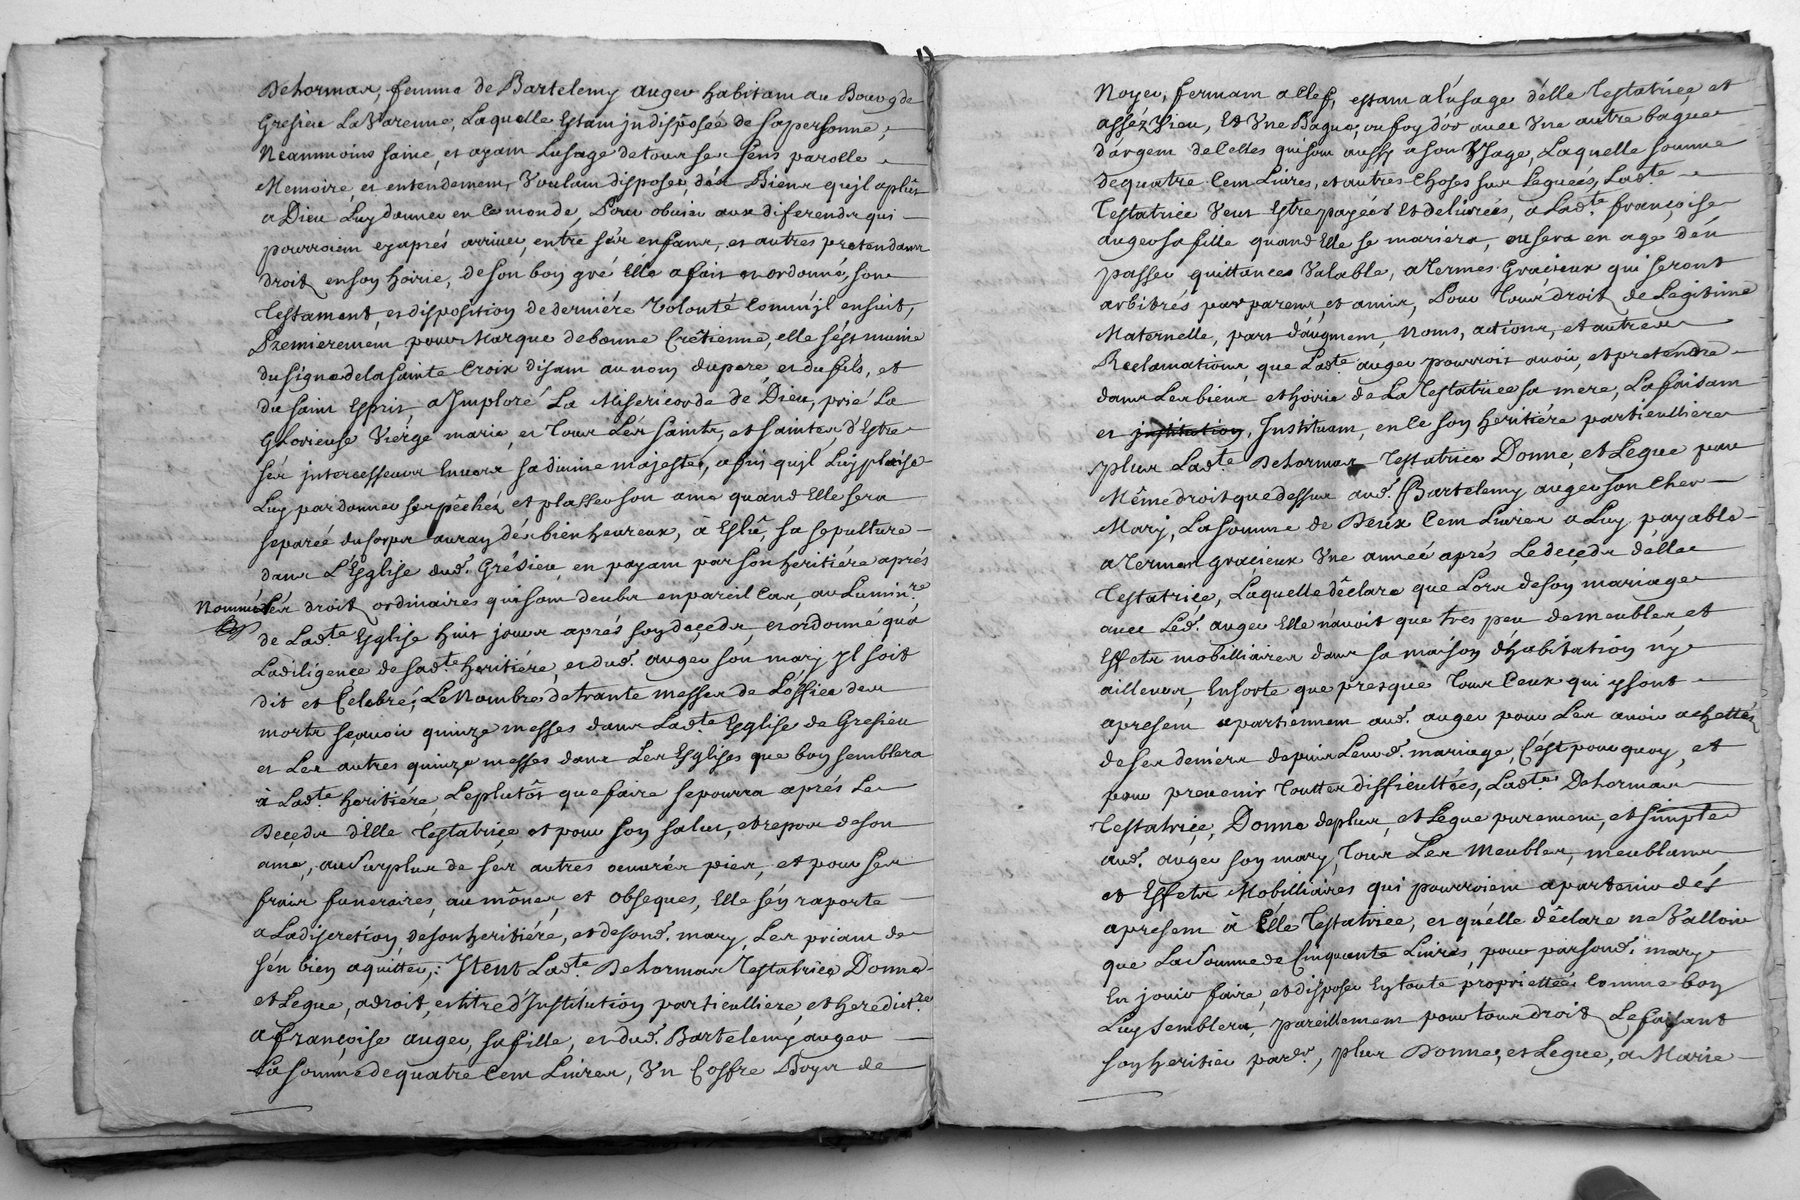 Dehormas, femme de Bartelemy auger habitant au Bourg de
Gresieu La Varenne, Laquelle Estant jndisposée de sa personne,
Neanmoins saine et ayant Lusage de tous ses sens parolle
Memoire et entendement, Voulant disposer dés Biens qu'jl a plût
a Dieu Luy donner en ce monde, Pour obuier aux diferends qui
pourroient cy aprés arriuer, entre sés enfans, et autres pretendans
droit en son hoirie, de son bon gré Elle a fait et ordonné, son
Testament, et disposition de derniére Volonté comm'jl ensuit,
Premierement pour Marque de bonne Crêtienne, elle s'ést munie
du signe de la sainte Croix disant au nom du pere, et du fils, et
du saint Esprit, a Imploré La Misericorde de Dieu, prié La
Glorieuse Viérge marie, et Tous Lés saints, et saintes, d'Estre
sés jntercesseurs Enuers sa diuine majesté, afin qu'jl Luy plaise
Luy pardonner ses pêchés, et plasser son ame quand Elle sera
separée du Corps au rang dés bien heureux, à Eslû, sa sepulture
dans L'Esglise dud. Grésieu en payant par son heritiére aprés
Nommée Lés droits ordinaires qui sont deubs en pareil Cas, au Lumin.re
de Lad.te Esglise huit jours aprés son deçeds, et ordonné qu'à
La diligençe de sad.te heritiére, et dud. auger son mary jl soit
dit et Celebré, Le Nombre de trante messes de L'offiçe des
morts sçauoir quinze messes dans Lad.te Esglise de Gresieu
et Les autres quinze messes dans Les Esglises que bon semblera
à Lad.te heritiére Le plutôt que faire se pourra aprés Le
Deçeds d'Elle Testatriçe et pour son salut, et repos de son
ame, au Surplus de ses autres oeuures pies, et pour ses
frais funeraires, aumônes, et obseques, Elle s'én raporte
a La discretion de son heritiére, et de sond. mary, Les priant de
s'én bien aquitter, Item Lad.te Dehormas Testatriçe Donne
et Legue, a droit, et titre d'Institution particulliere, et heredit.re
a françoise auger, sa fille, et dud. Bartelemy auger
La somme de quatre Cent Liures, Vn Coffre Boys de
Noyer, fermant a Clef, estant a l'usage d'elle Testatriçe, et
assez Vieu, Et Vne Bague, ou foy d'or auec Vne autre bague
d'argent de Celles qui sont aussy a son Vsage, Laquelle somme
de quatre Cent Liures, et autres choses sus Leguées, Lad.te
Testatriçe Veut Estre payées Et deliurées, a Lad.te françoise
auger sa fille quand Elle se mariera, ou sera en age d'én
passer quittances Valable, a Termes Gracieux qui seront
arbitrés par parens, et amis, Pour Tous droit de Legitime
Maternelle, part d'augment Noms, actions, et autres
Reclamations, que Lad.te auger pourroit auoir, et pretendre
dans Les biens et hoirie de La Testatriçe sa mere, La faisant
et Instituant, en ce son heritiére particulliere
plus Lad.te Dehormas Testatriçe Donne, et Legue pour
Même droit que dessus aud. Bartelemy auger son Cher
Mary, La somme de Deux Cent Liures a Luy payable
a Termes Gracieux Vne année aprés Le deçeds d'elle
Testatriçe, Laquelle déclare que Lors de son mariage
auec Led. auger Elle n'auoit que tres peu de meubles et
Effets mobilliaires dans sa maison d'habitation n'y
ailleurs, Ensorte que presque Tous Ceux qui y sont
apresent apartiennent aud. auger pour Les auoir achettés
de ses deniérs depuis Leurd. mariage, C'ést pourquoy, et
pour preuenir Touttes difficultées, Lad.te Dehormas
Testatriçe, Donne deplus, et Legue purement, et simplem.
aud. auger son mary, Tous Les Meubles, meublans
et Effets Mobilliaires qui pourroient apartenir dés
apresent à Elle Testatriçe, et qu'élle déclare ne Valloir
que La Somme de Cinquante Liures, pour par sond. mary
En jouir faire, et disposer En toute propriettée Comme bon
Luy Semblera, pareillement pour tous droit Le faisant
son heritier par.er, plus Donne, et Legue, a Marie